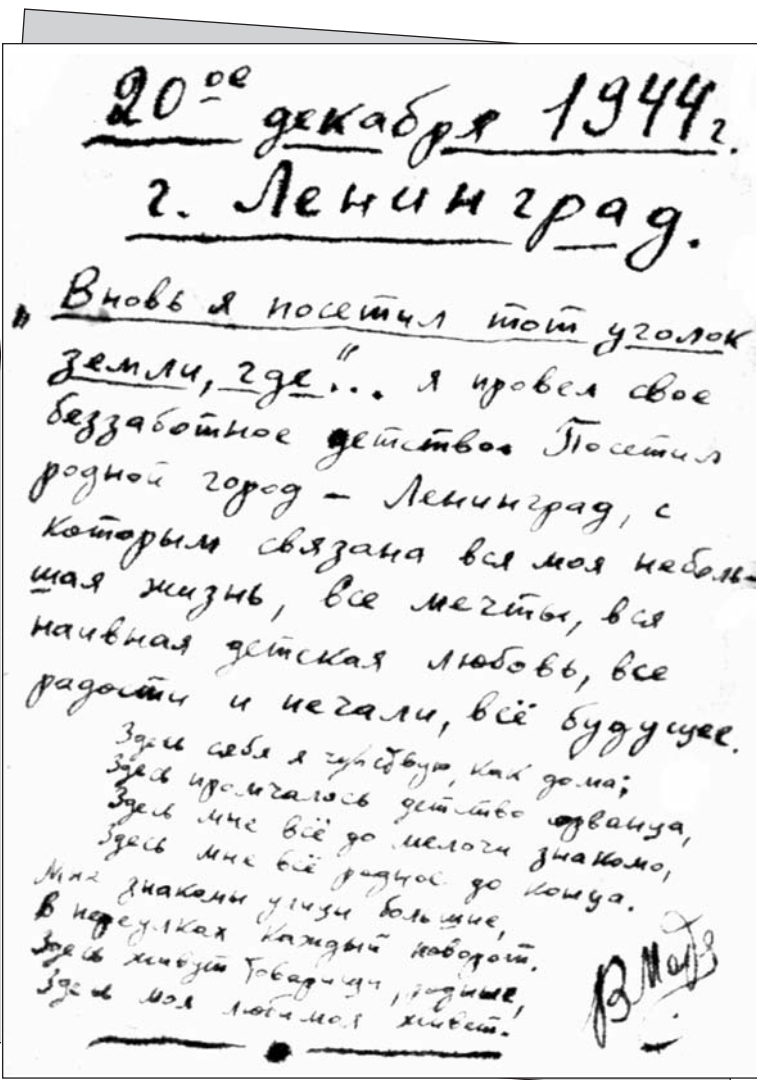 20ое декабря 1944г.
г. Ленинград.
„Вновь я посетил тот уголок
земли, где“... я провел свое
беззаботное детство. Посетил
родной город – Ленинград, с
которым связана вся моя неболь-
шая жизнь, все мечты, вся
наивная детская любовь, все
радости и печали, всё будущее.
Здесь себя я чувствую, как дома;
Здесь промчалось детство сорванца,
Здесь мне всё до мелочи знакомо,
Здесь мне всё родное до конца.
Мне знакомы улицы большие,
В переулках каждый поворот.
Здесь живут товарищи, родные,
Здесь моя любимая живет.